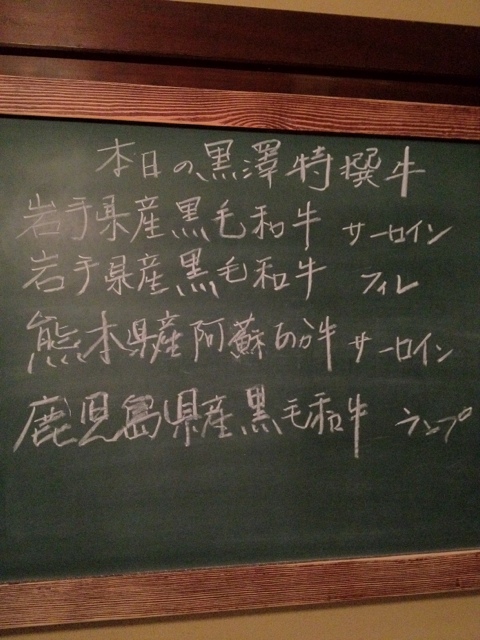 本日の黒澤特撰牛
岩手県産黒毛和牛 サーロイン
岩手県産黒毛和牛 フィレ
熊本県産阿蘇あか牛 サーロイン
鹿児島県産黒毛和牛 ランプ